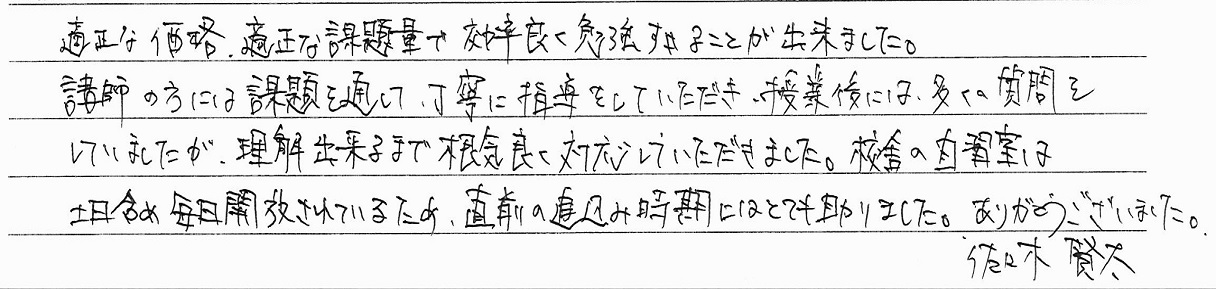 適正な価格、適正な課題量で効率良く勉強することが出来ました。
講師の方には課題を通して、丁寧に指導をしていただき、授業後には、多くの質問を
していましたが、理解出来るまで根気良く対応していただきました。校舎の自習室は
土日含め毎日開放されているため、直前の追込み時期にはとても助かりました。ありがとうございました。
佐々木 賢太